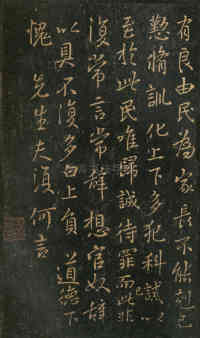 有良由民為家長不能克己
懃脩訓化上下多犯科誡以
至於此民唯歸誠待罪而此非
復常言常辭想官奴辭
以具不復多白上負道德下
愧先生夫復何言